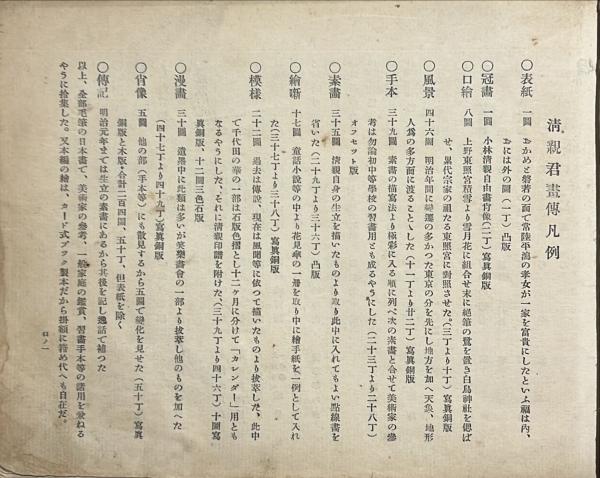 清親君畫傳凡例
〇表紙 一圖 おかめと磐若の面で常陸平潟の孝女が一家を富貴にしたといふ福は內、
おには外の圖(一丁)凸版
〇冠畫 一圖 小林淸親自由書肖像(二丁)寫眞銅版
〇口繪 八圖 上野東照宮積雪より雪月花に組合せ末に絕筆の鷺を置き白鳥神社を偲ば
せ、累代宗家の祖たる東照宮に對照させた、(三丁より十丁)寫眞銅版
〇風景 四十六圖 明治年間に變遷の多かつた東京の分を先にし地方を加へ天象、地形
人爲の多方面に渡ることゝした(十一丁より廿二丁)寫眞銅版
〇手本 三十九圖 素畫の描寫法より極彩に入る順に列べ次の素畫と合せて美術家の參
考は勿論初中等學校の習畫用とも成るやうにした(二十三丁より二十八丁)
オフセット版
〇素畫 三十五圖 淸親自身の生立を描いたものより取り此中に入れてもよい點線畫を
省いた(二十九丁より三十六丁)凸版
〇繪噺 十七圖 童話小說等の中より花見傘の一册を取り中に繪手紙を一例として入れ
た(三十七丁より三十八丁)寫眞銅版
〇模樣 二十二圖 過去は傳說、現在は風聞等に依つて描いたものより拔萃した、此中
で千代田の華の一部は石版色摺とし十二ヶ月に分けて「カレンダー」用とも
なるやうにした、それに淸親印譜を附けた(三十九丁より四十六丁)十圖寫
眞銅版、十二圖三色石版
〇漫畫 三十圖 遺墨中に此類は多いが笑樂畫會の一部より拔萃し他のものを加へた
(四十七丁より四十九丁)寫眞銅版
〇肖像 五圖 他の部(手本等)にも散見するから五圖で變化を見せた(五十丁)寫眞
銅版と木版、合計二百四圖、五十丁、但表紙を除く
〇傳記 明治元年までは生立の素畫にあるから其後を記し逸話で補つた
以上、全部毛筆の日本畫で、美術家の參考、一般家庭の鑑賞、習畫手本等の諸用を兼ねる
やうに拾集した。又本編の繪は、カード式ブック製本だから掛額に籍め代へも自在だ。